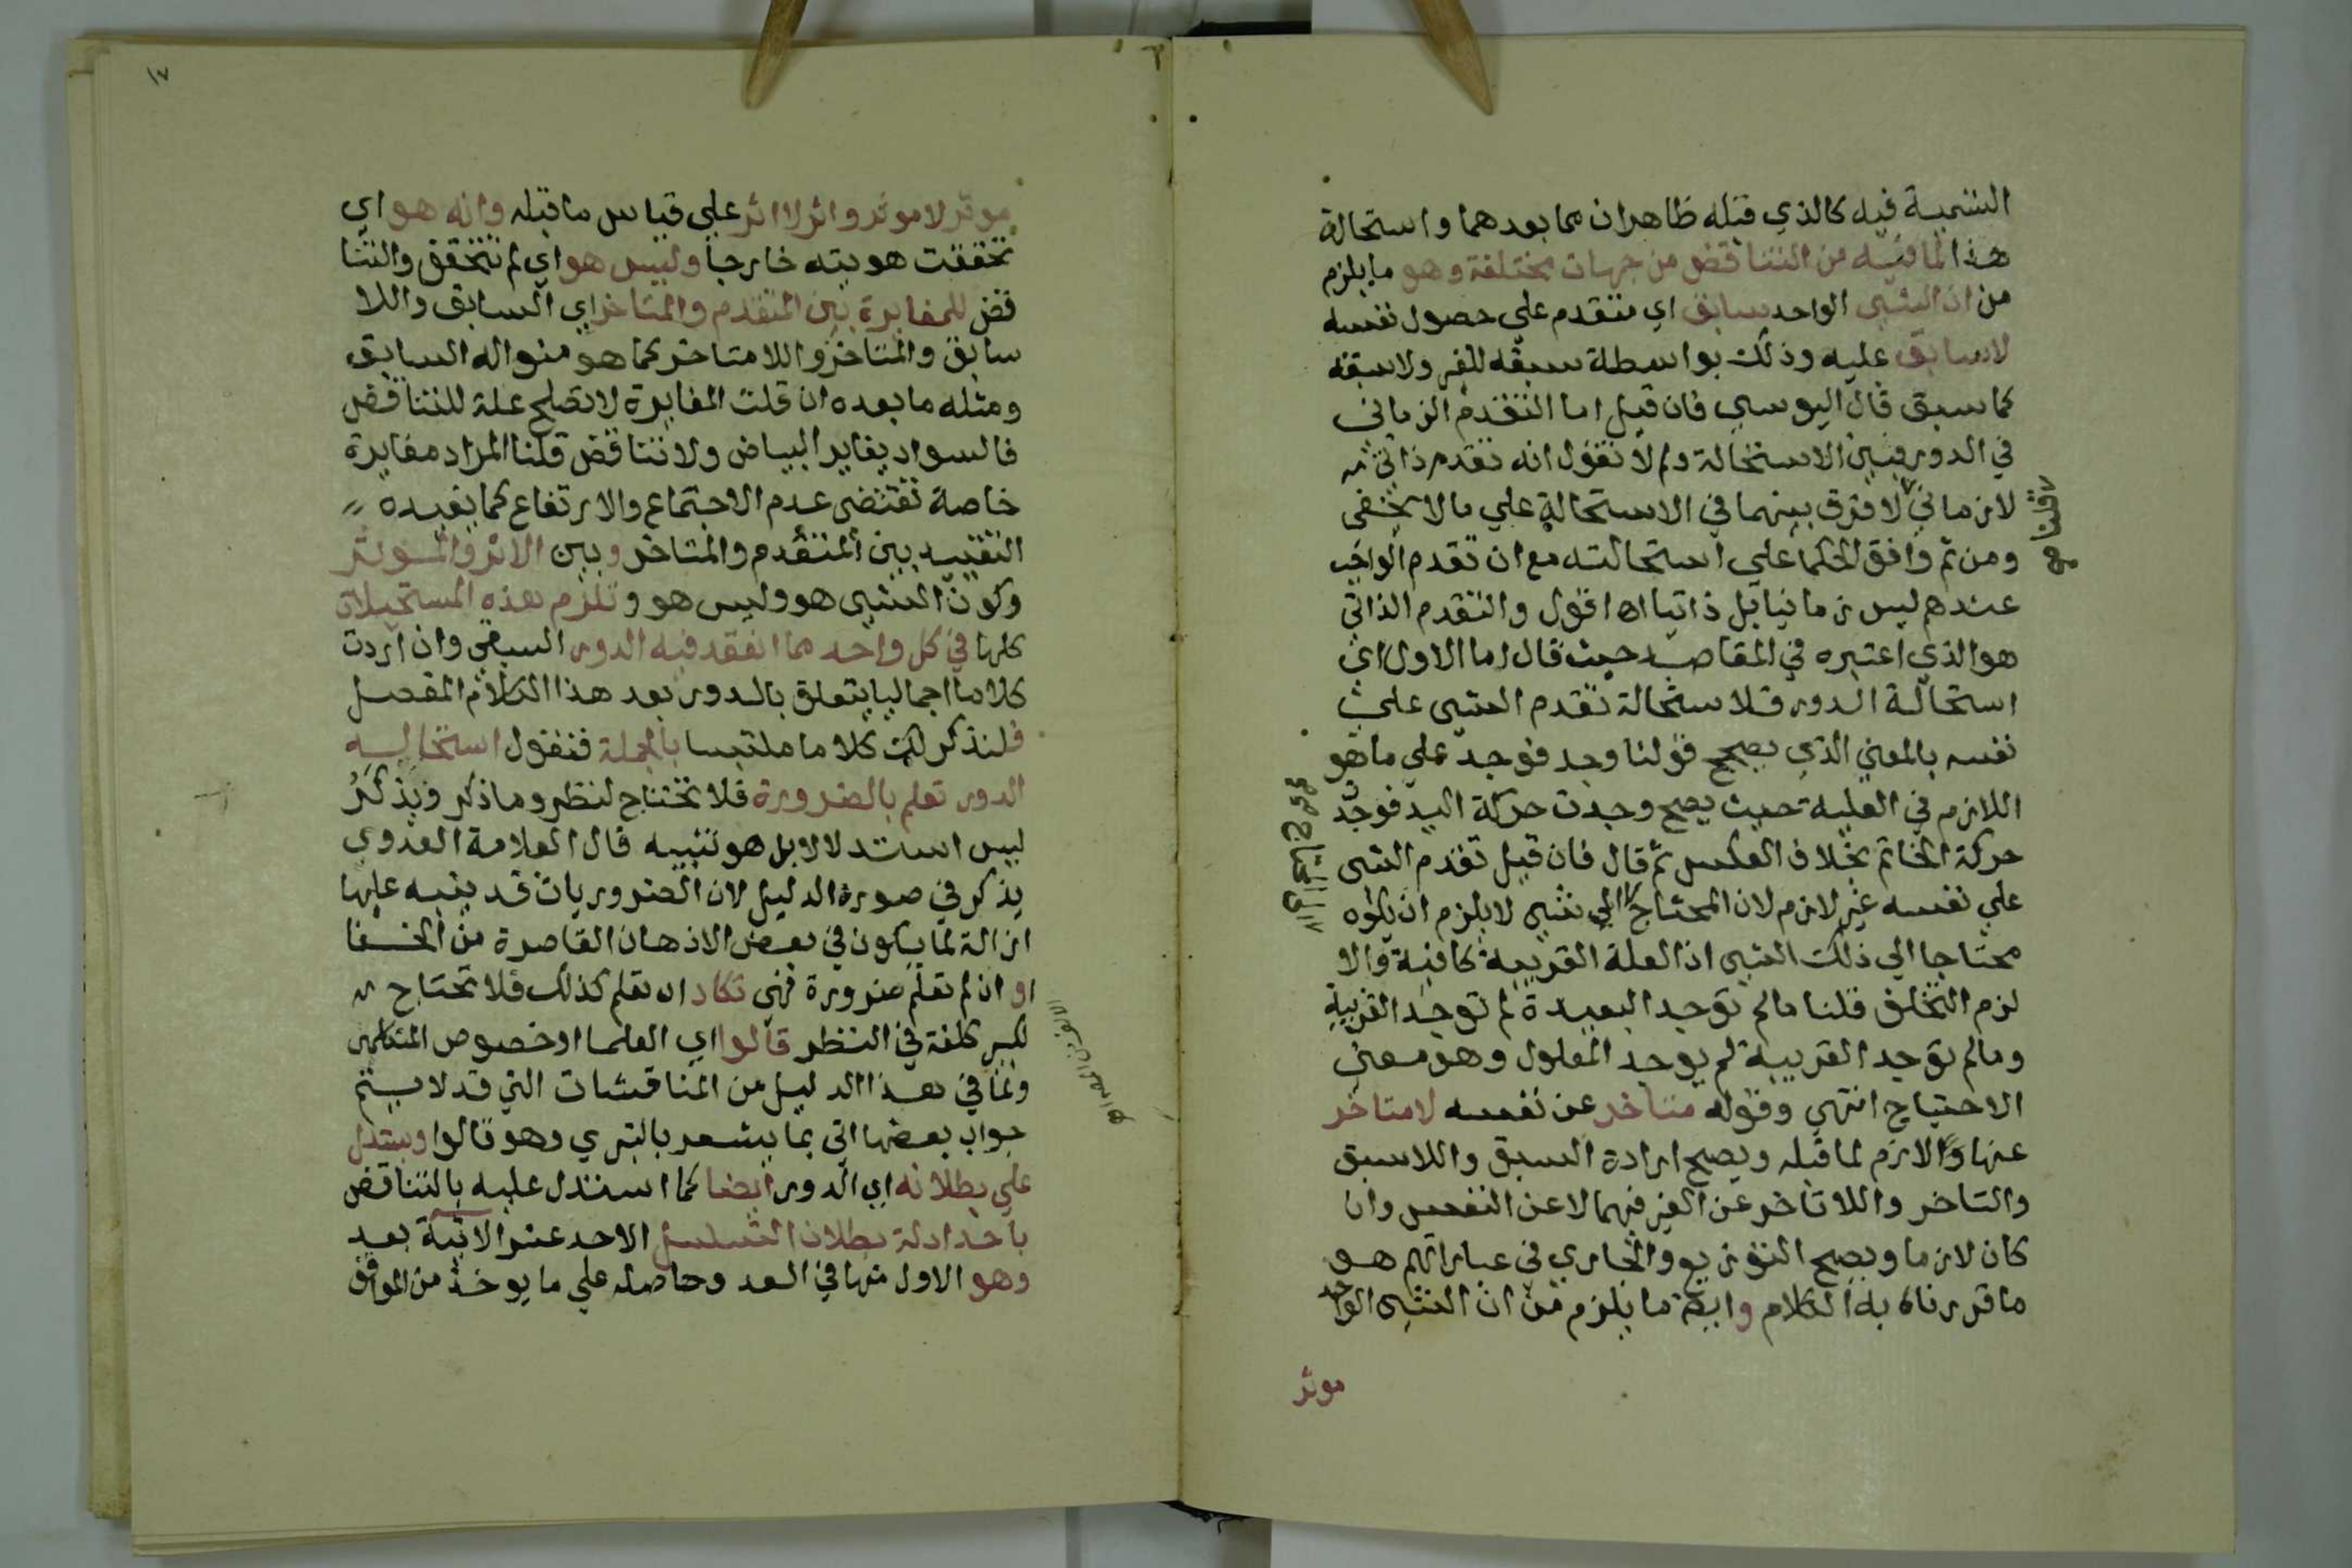 التسمية فيه كالذي قبله ظاهران مما بعدهما واستحالة
هذا لما فيه من التناقض من جهات مختلفة وهو ما يلزم
من ان الشيى الواحد سابق اي متقدم علي حصول نفسه
لا سابق عليه وذلك بواسطة سبقه للغير ولا سبقه
كما سبق قال اليوسي فان قيل اما التقدم الزماني
في الدور فبين الاستحالة ولم لا نقول انه تقدم ذاتي
لا زماني لا فرق بينهما في الاستحالة علي ما لا يخفى
قلنا صح
ومن ثم وافق الحكما علي استحالته مع ان تقدم الواجب
عندهم ليس زمانيا بل ذاتيا اه اقول والتقدم الذاتي
هو الذي اعتبره في المقاصد حيث قال اما الاول اي
استحالة الدور فلاستحالة تقدم الشى علي
نفسه بالمعني الذي يصحح قولنا وجد فوجد علي ما هو
اللازم في العلية حيث يصح وجدت حركة اليد فوجد
حركة الخاتم بخلاف العكس ثم قال فان قيل تقدم الشى
علي نفسه غير لازم لان المحتاج الي شيى لا يلزم ان يكون
محتاجا الي ذلك الشيى اذ العلة القريبة كافية والا
لزم التخلف قلنا ما لم توجد البعيدة لم توجد القريبة
وما لم توجد القريبة لم يوجد المعلول وهو معني
الاحتياج انتهي وقوله متاخر عن نفسه لا متاخر
عنها والازم لما قبله ويصح ارادة السبق واللاسبق
والتاخر واللاتاخر عن الغير فيهما لا عن النفس وان
كان لازما ويصح التوزيع والجاري في عباراتهم هو
ما قررناه به الكلام وايضا ما يلزم من ان الشيى الواحد
موثر
١٧
موثر لا موثر واثر لا اثر علي قياس ما قبله وانه هو اي
تحققت هويته خارجا وليس هو اي لم تتحقق والتنا
قض للمغايرة بين المتقدم والمتاخر اي السابق واللا
سابق والمتاخر واللامتاخر كما هو منواله السابق
ومثله ما بعده ان قلت المغايرة لا تصلح علة للتناقض
فالسواد يغاير البياض ولا تناقض قلنا المراد مغايرة
خاصة تقتضى عدم الاجتماع والارتفاع كما يفيده
التقييد بين المتقدم والمتاخر وبين الاثر والموثر
وكون الشيى هو وليس هو وتلزم هذه المستحيلات
كلها في كل واحد مما انعقد فيه الدور السبقي وان اردت
كلاما اجماليا يتعلق بالدور بعد هذا الكلام المفصل
فلنذكر لك كلاما ملتبسا بالجملة فنقول استحالة
الدور تعلم بالضرورة فلا تحتاج لنظر وما ذكر ويذكر
ليس استدلالا بل هو تنبيه قال العلامة العدوي
يذكر في صورة الدليل لان الضروريات قد ينبه عليها
ازالة لما يكون في بعض الاذهان القاصرة من الخفا
او ان لم تعلم ضرورة فهي تكاد ان تعلم كذلك فلا تحتاج
لكبير كلفة في النظر قالوا اي العلما او خصوص المتكلمين
ولما في هذا الدليل من المناقشات التي قد لا يتم
جواب بعضها اتى بما يشعر بالتبري وهو قالوا ويستدل
علي بطلانه اي الدور ايضا كما استدل عليه بالتناقض
باحد ادلة بطلان التسلسل الاحد عشر الاتية بعد
وهو الاول منها في العد وحاصله علي ما يوخذ من المواقف